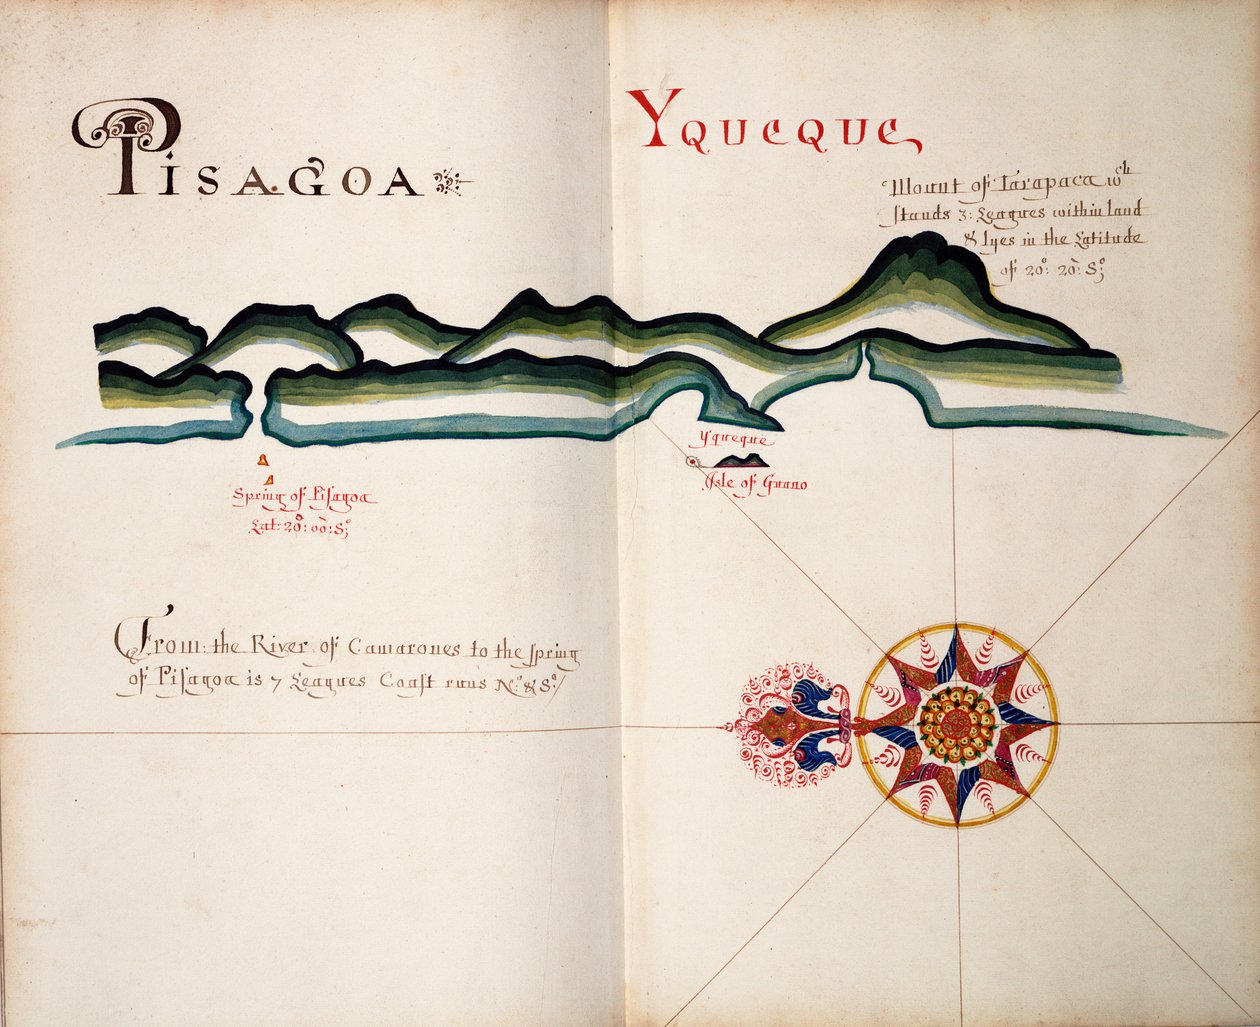 Pisagoa
Yqueque
Mount of Tarapaca wch
stands 3: Leagues within land
& lyes in the Latitude
of 20°: 20: S°;
Yqueque
Isle of Guano
Spring of Pisagoa
Lat: 20°: 00: S°;
From: the River of Camarones to the spring
of Pisagoa is 7 Leagues Coast runs No: & So:/